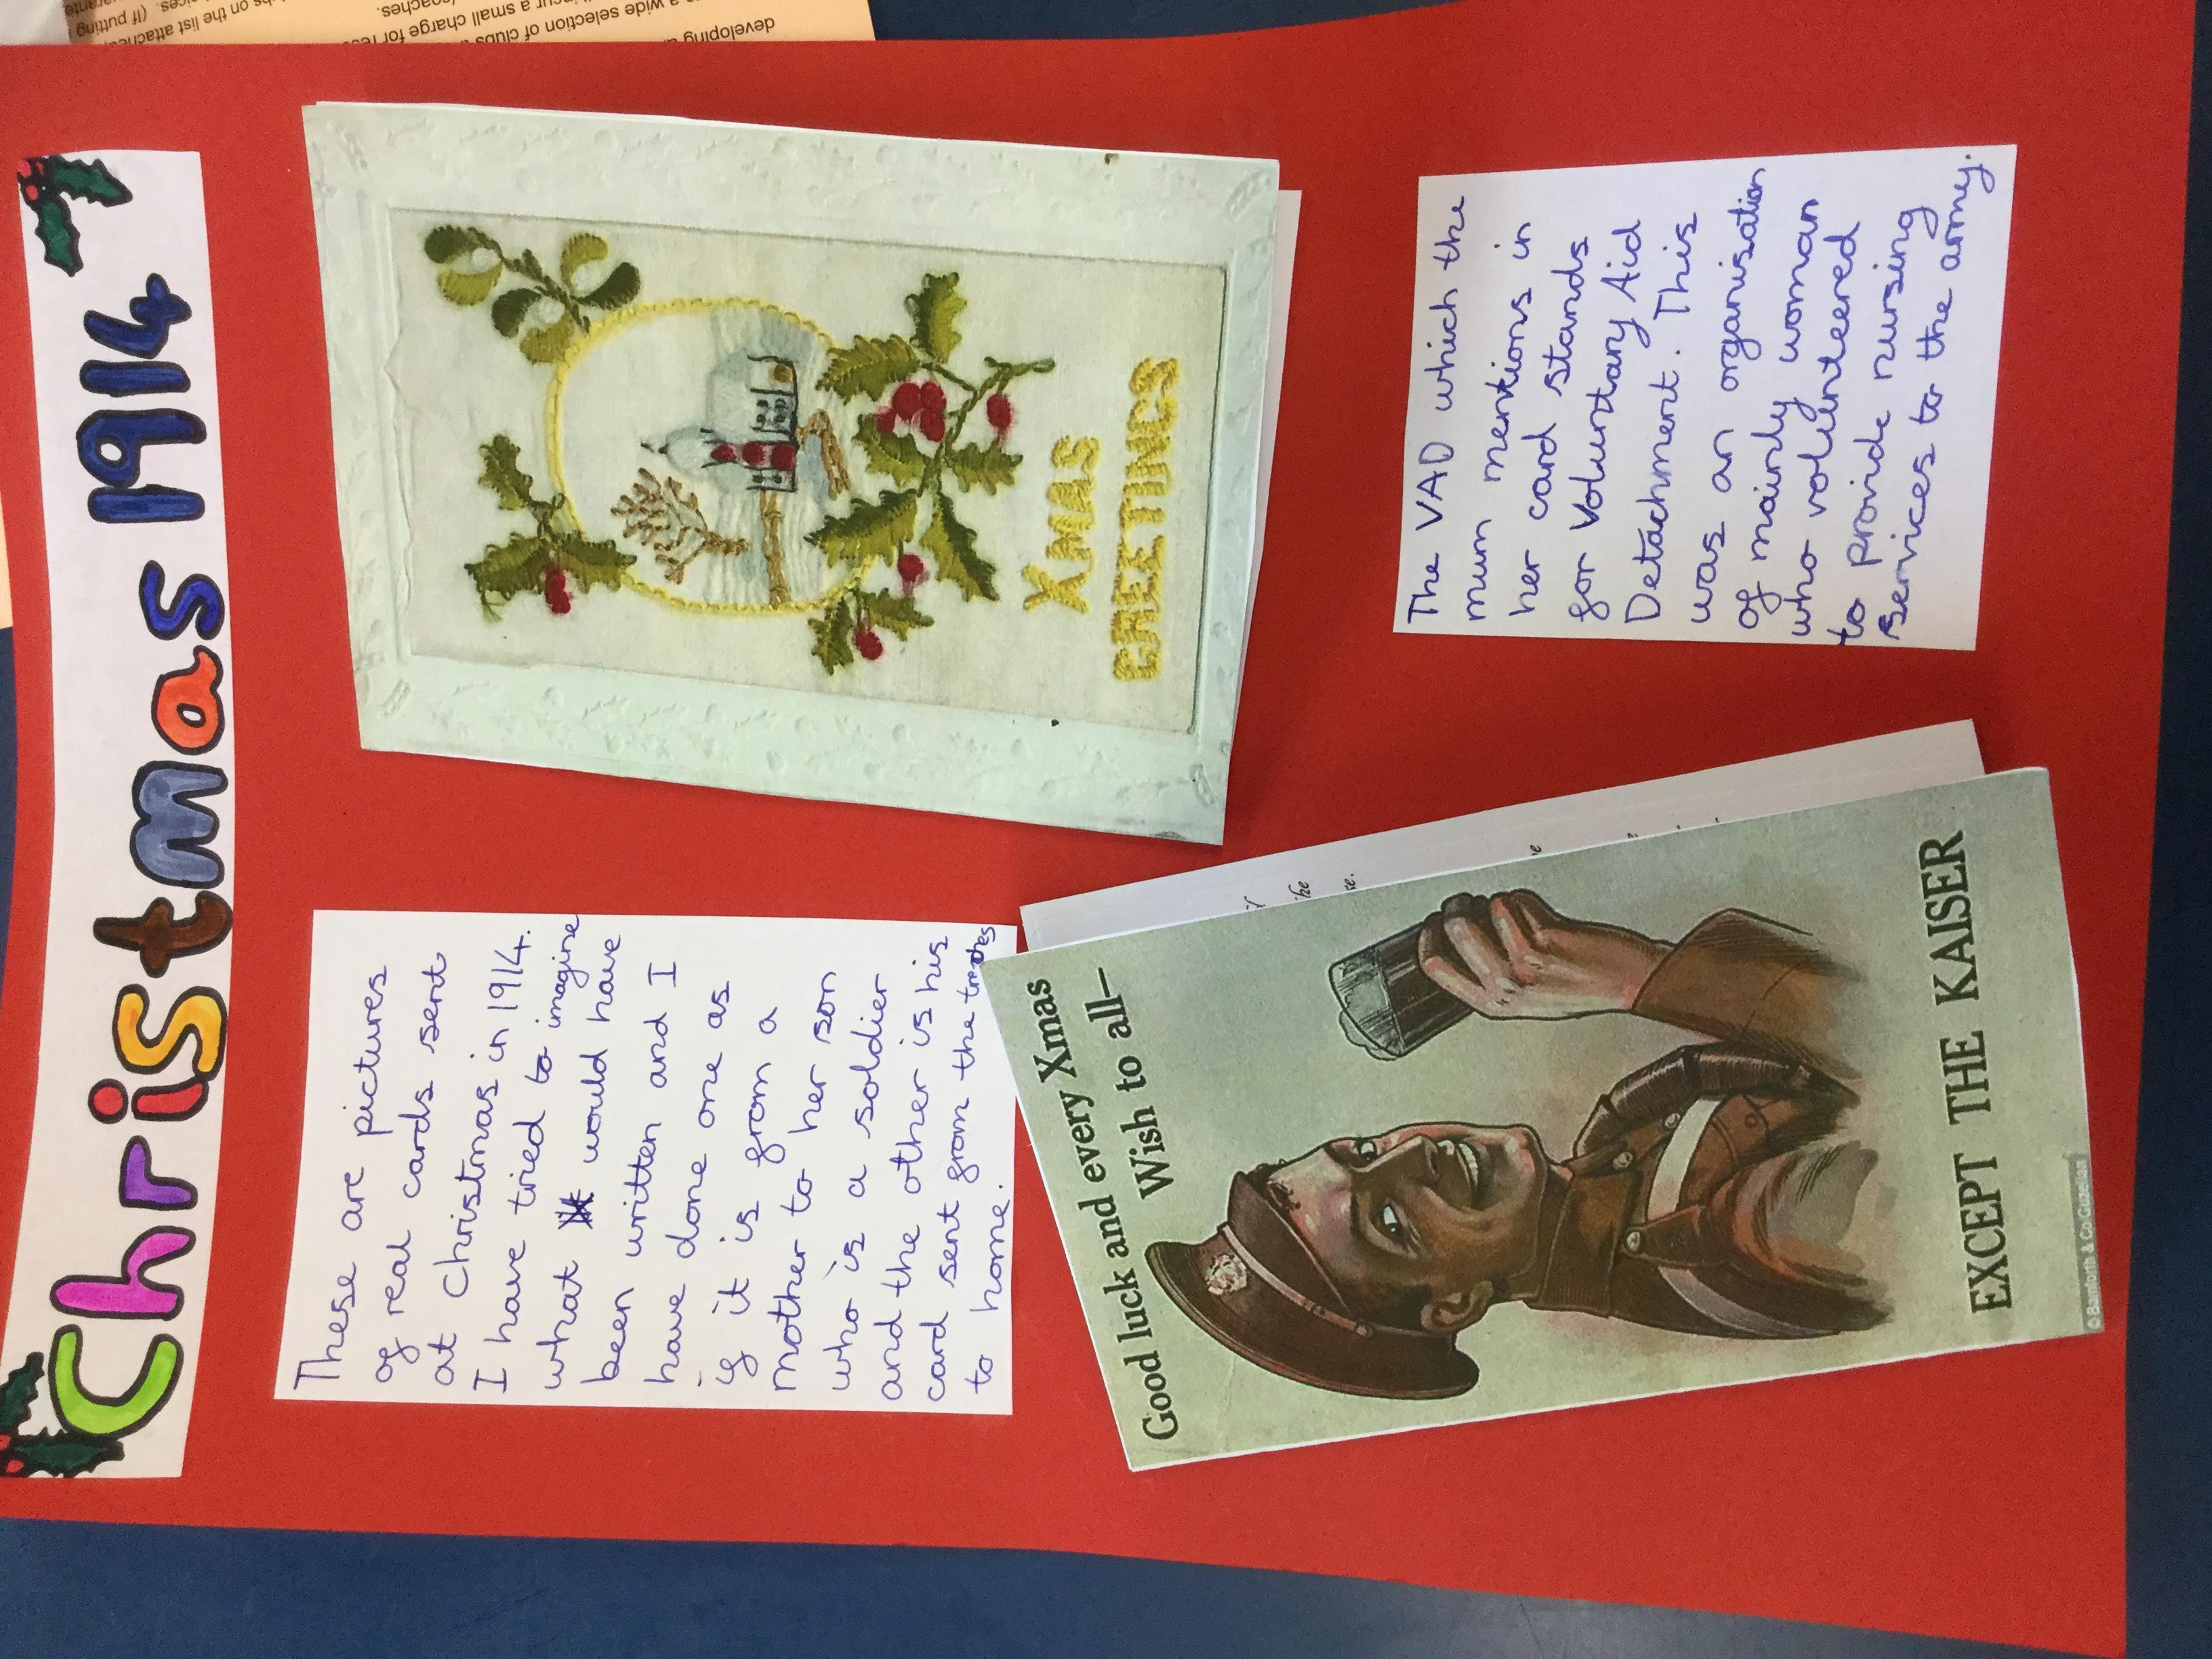 Christmas 1914
These are pictures
of real cards sent
at Christmas in 1914.
I have tried to imagine
what would have
been written and I
have done one as
if it is from a
mother to her son
who is a soldier
and the other is his
card sent from the trenches
to home.
XMAS
GREETINGS
Good luck and every Xmas
Wish to all—
EXCEPT THE KAISER
© Bamforth & Co Guzelian
The VAD which the
mum mentions in
her card stands
for Voluntary Aid
Detachment. This
was an organisation
of mainly woman
who volunteered
to provide nursing
services to the army.
developing
a wide selection of clubs
incur a small charge for
coaches.
on the list attached
(If putting